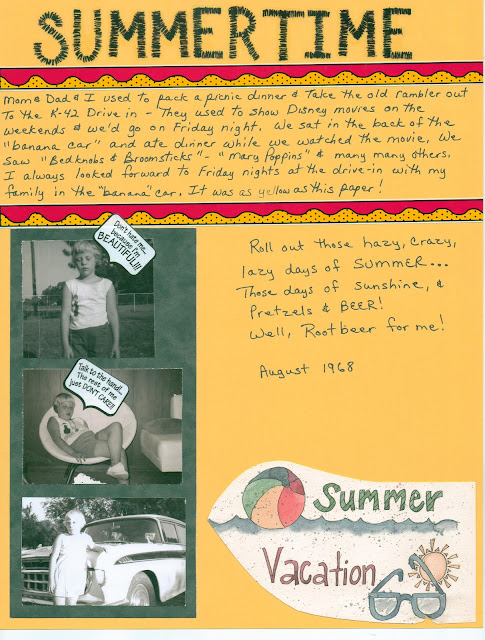 SUMMERTIME
Mom & Dad & I used to pack a picnic dinner & take the old rambler out
To the K-42 Drive in - They used to show Disney movies on the
weekends & we'd go on Friday night. We sat in the back of the
"banana car" and ate dinner while we watched the movie. We
saw "Bedknobs & Broomsticks" - "Mary Poppins" & many many others.
I always looked forward to Friday nights at the drive-in with my
family in the "banana" car. It was as yellow as this paper!
Don't hate me...
because I'm
BEAUTIFUL!!!
Roll out those hazy, crazy,
lazy days of SUMMER...
Those days of sunshine, &
Pretzels & BEER!
Well, Rootbeer for me!
August 1968
Talk to the hand!...
The rest of me
just DON'T CARE!!
Summer
Vacation